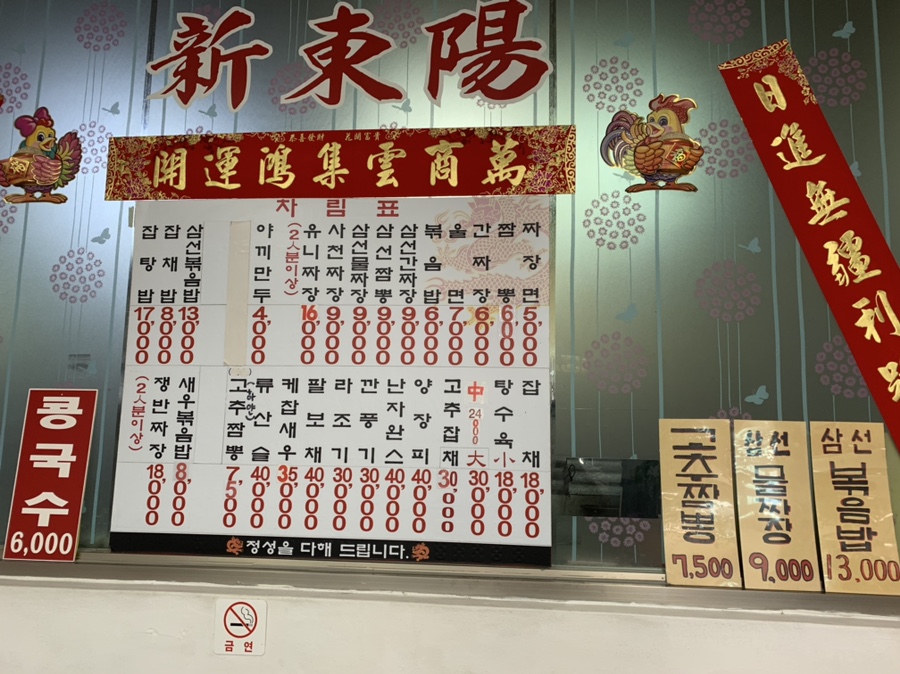 新東陽
恭喜發財 花開富貴
萬商雲集鴻運開
日進無疆利
차림표
짜장면 5,000
짬뽕 6,000
간짜장 6,000
울면 7,000
볶음밥 6,000
삼선간짜장 9,000
삼선짬뽕 9,000
삼선물짜장 9,000
사천짜장 9,000
유니짜장 (2人분이상) 16,000
야끼만두 4,000
삼선볶음밥 13,000
잡채밥 8,000
잡탕밥 17,000
잡채 18,000
탕수육 小 18,000
中 24000 大 30,000
고추잡채 30,000
양장피 40,000
난자완스 40,000
깐풍기 30,000
라조기 30,000
팔보채 40,000
케찹새우 35,000
류산슬 40,000
고추짬뽕 (하얀) 7,500
새우볶음밥 8,000
쟁반짜장 (2人분이상) 18,000
정성을 다해 드립니다.
콩국수
6,000
고추짬뽕
7,500
삼선물짜장
9,000
삼선볶음밥
13,000
금연